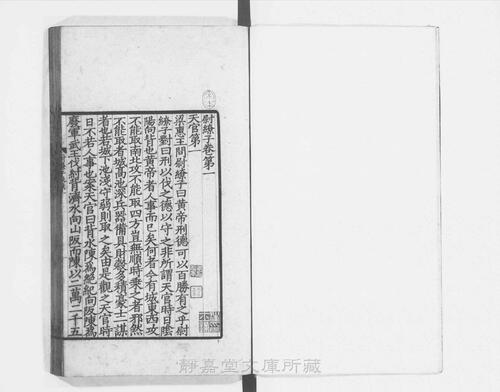 尉繚子卷第一
天官第一
梁惠王問尉繚子曰黃帝刑德可以百勝有之乎尉
繚子對曰刑以伐之德以守之非所謂天官時日陰
陽向背也黃帝者人事而已矣何者今有城東西攻
不能取南北攻不能取四方豈無順時乘之者邪然
不能取者城高池深兵器備具財穀多積豪士一謀
者也若城下池淺守弱則取之矣由是觀之天官時
日不若人事也案天官曰背水陳爲絕紀向阪陳爲
廢軍武王伐紂背濟水向山阪而陳以二萬二千五
靜嘉堂文庫所藏